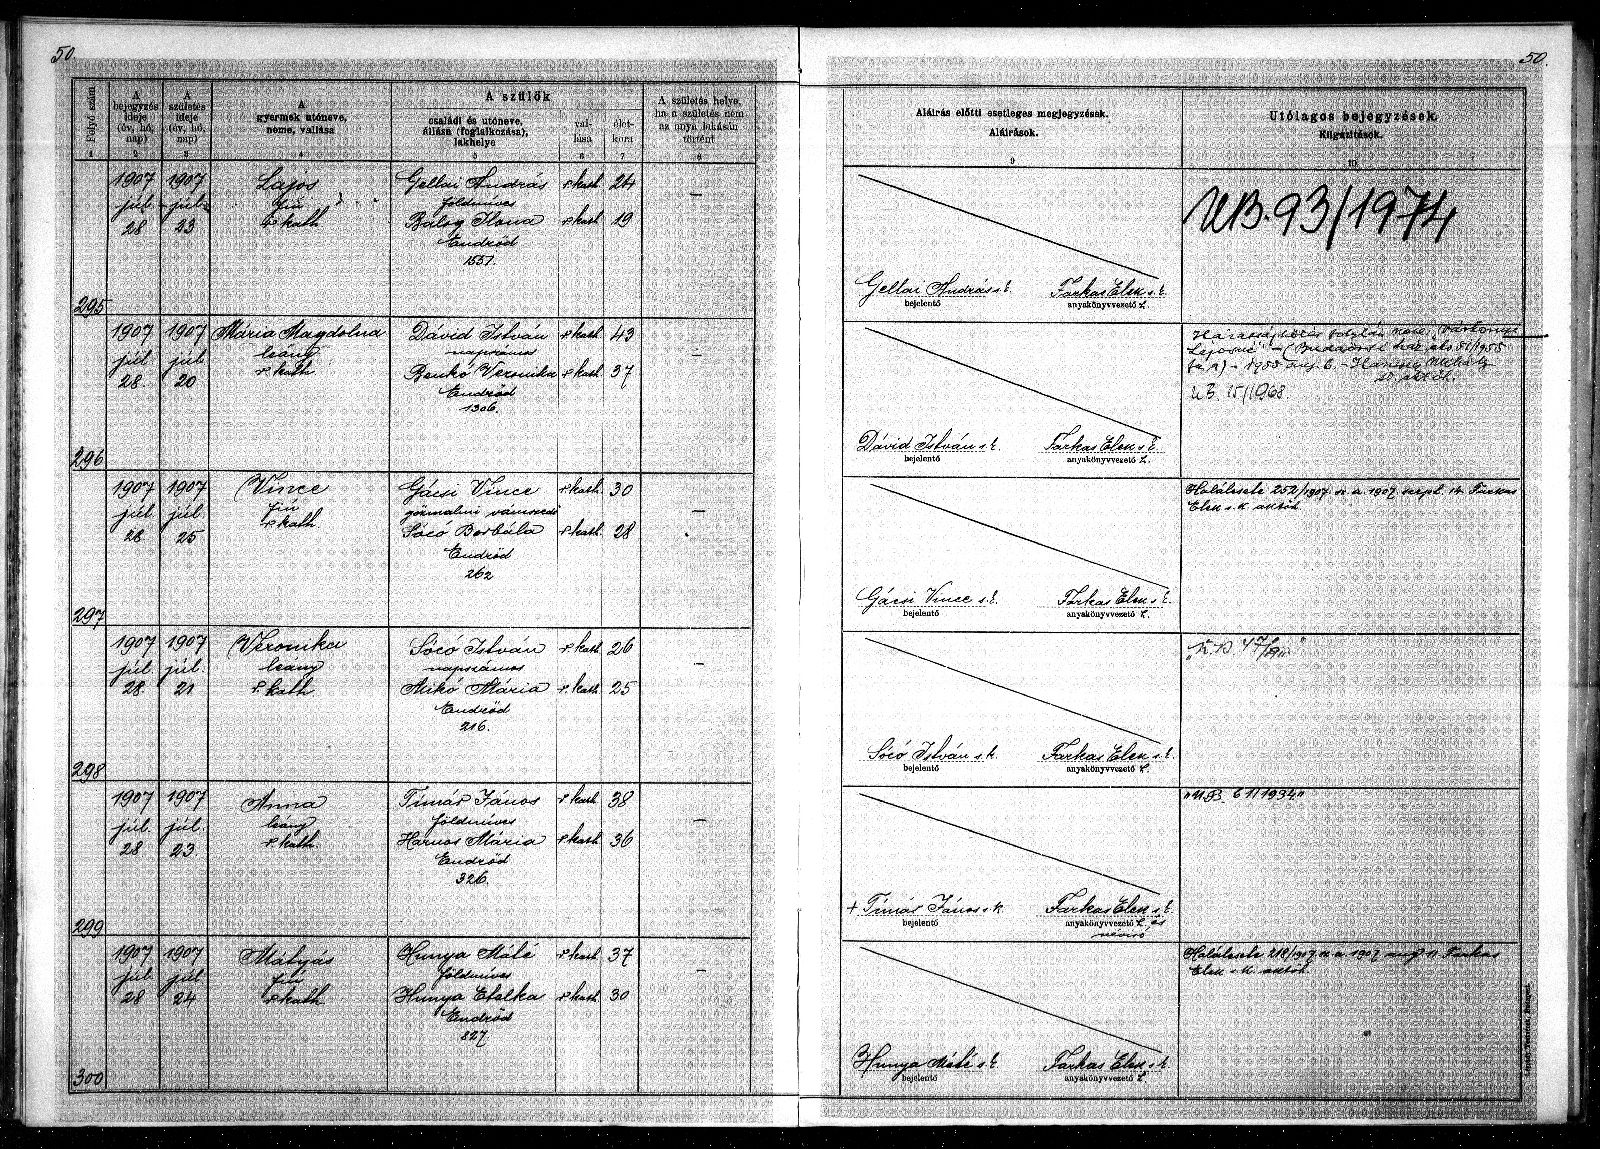 50.
50.
Folyó szám
A bejegyzés ideje (év, hó, nap)
A születés ideje (év, hó, nap)
A gyermek utóneve, neme, vallása
A szülők
családi és utóneve, állása (foglalkozása), lakhelye
vallása
életkora
A születés helye, ha a születés nem az anya lakásán történt
Aláírás előtti esetleges megjegyzések.
Aláírások.
Utólagos bejegyzések.
Kiigazítások.
1 2 3 4 5 6 7 8 9 10
295
1907 júl. 28
1907 júl. 23
Lajos
fiu
r. kath
Gellai András r. kath 24
földmíves
Bálog Ilona r. kath 19
Endrőd
1557.
—
Gellai András s. k.
bejelentő
Farkas Elek s. k.
anyakönyvvezető h.
UB. 93/1974
296
1907 júl. 28
1907 júl. 20
Mária Magdolna
leány
r. kath
Dávid István r. kath 43
napszámos
Benkó Veronika r. kath 37
Endrőd
1306.
—
Dávid István s. k.
bejelentő
Farkas Elek s. k.
anyakönyvvezető h.
UB. 15/1968.
297
1907 júl. 28
1907 júl. 25
Vince
fiu
r. kath
Gácsi Vince r. kath. 30
gőzmalmi vámszedő
Sócó Borbála r. kath. 28
Endrőd
262
—
Gácsi Vince s. k.
bejelentő
Farkas Elek s. k.
anyakönyvvezető h.
Halálesete 252/1907 sz. a. 1907. szept. 14. Farkas
Elek s. k. aktód
298
1907 júl. 28.
1907 júl. 21
Veronika
leány
r. kath
Sócó István r. kath 26
napszámos
Mikó Mária r. kath 25
Endrőd
216.
—
Sócó István s. k.
bejelentő
Farkas Elek s. k.
anyakönyvvezető h.
299
1907 júl. 28
1907 júl. 23.
Anna
leány
r. kath.
Timár János r. kath 38
földmíves
Harnos Mária r. kath 36
Endrőd
326.
—
+ Timár János s. k.
bejelentő
Farkas Elek s. k.
anyakönyvvezető h. és
névíró
„U.B. 61/1934."
300
1907 júl. 28
1907 júl. 24
Mátyás
fiu
r. kath
Hunya Máté r. kath 37
földmíves
Hunya Etelka r. kath 30
Endrőd
827.
—
Hunya Máté s. k.
bejelentő
Farkas Elek s. k.
anyakönyvvezető h.
Halálesete 218/1907. sz. a. 1907. aug. 11. Farkas
Elek s. k. aktód